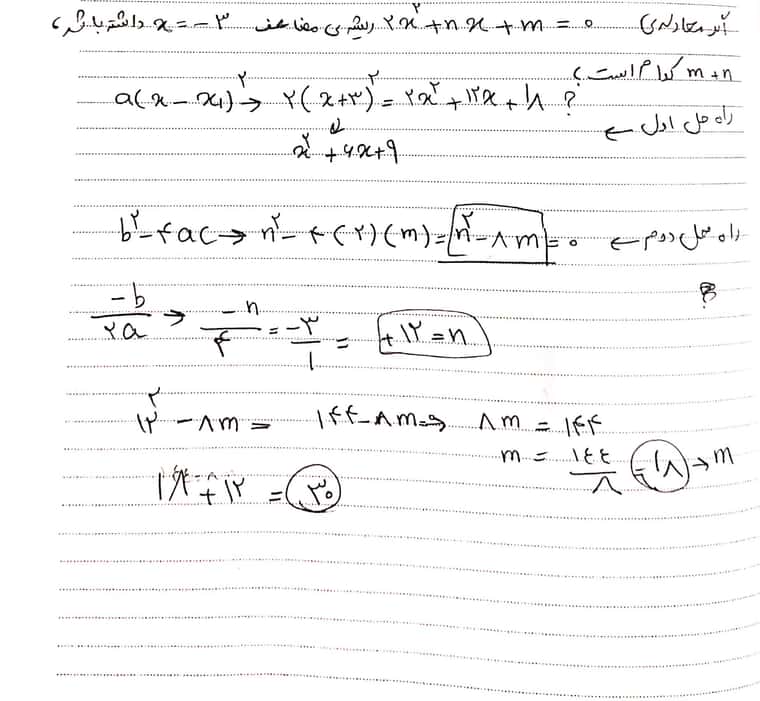 اگر معادله‌ی ۲x²+nx+m=۰ ریشه‌ی مضاعف x=-۳ داشته باشد،
m+n کدام است؟
راه حل اول ←
a(x-x₁)² → ۲(x+۳)² = ۲x²+۱۲x+۱۸ ?
x²+۶x+۹
راه حل دوم ← b²-۴ac → n²-۴(۲)(m) = n²-۸m = ۰
-b/۲a → -n/۴ = -۳/۱ = +۱۲=n
۱۲²-۸m = ۱۴۴-۸m ⇒ ۸m = ۱۴۴
m = ۱۴۴/۸ = ۱۸ → m
۱۸+۱۲ = ۳۰